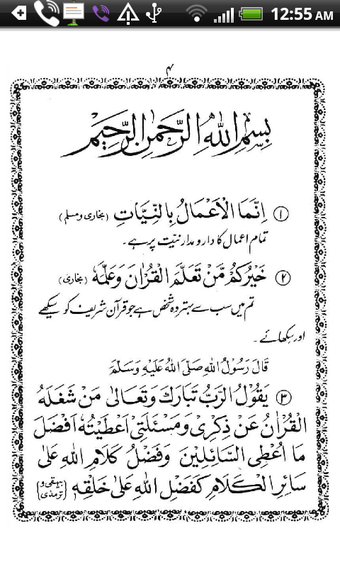 12:55 AM
۴
بِسْمِ اللهِ الرَّحْمٰنِ الرَّحِيْمِ
① اِنَّمَا الْاَعْمَالُ بِالنِّيَّاتِ (بخاری ومسلم)
تمام اعمال کا دارو مدار نیت پر ہے۔
② خَيْرُكُمْ مَّنْ تَعَلَّمَ الْقُرْاٰنَ وَعَلَّمَهٗ (بخاری)
تم میں سب سے بہتر وہ شخص ہے جو قرآن شریف کو سیکھے
اور سکھائے۔
قَالَ رَسُوْلُ اللهِ صَلَّى اللهُ عَلَيْهِ وَسَلَّمَ
③ يَقُوْلُ الرَّبُّ تَبَارَكَ وَتَعَالٰى مَنْ شَغَلَهُ
الْقُرْاٰنُ عَنْ ذِكْرِىْ وَمَسْئَلَتِىْ اَعْطَيْتُهٗ اَفْضَلَ
مَا اُعْطِى السَّائِلِيْنَ وَفَضْلُ كَلَامِ اللهِ عَلٰى
سَائِرِ الْكَلَامِ كَفَضْلِ اللهِ عَلٰى خَلْقِهٖ (بیہقی و ترمذی)